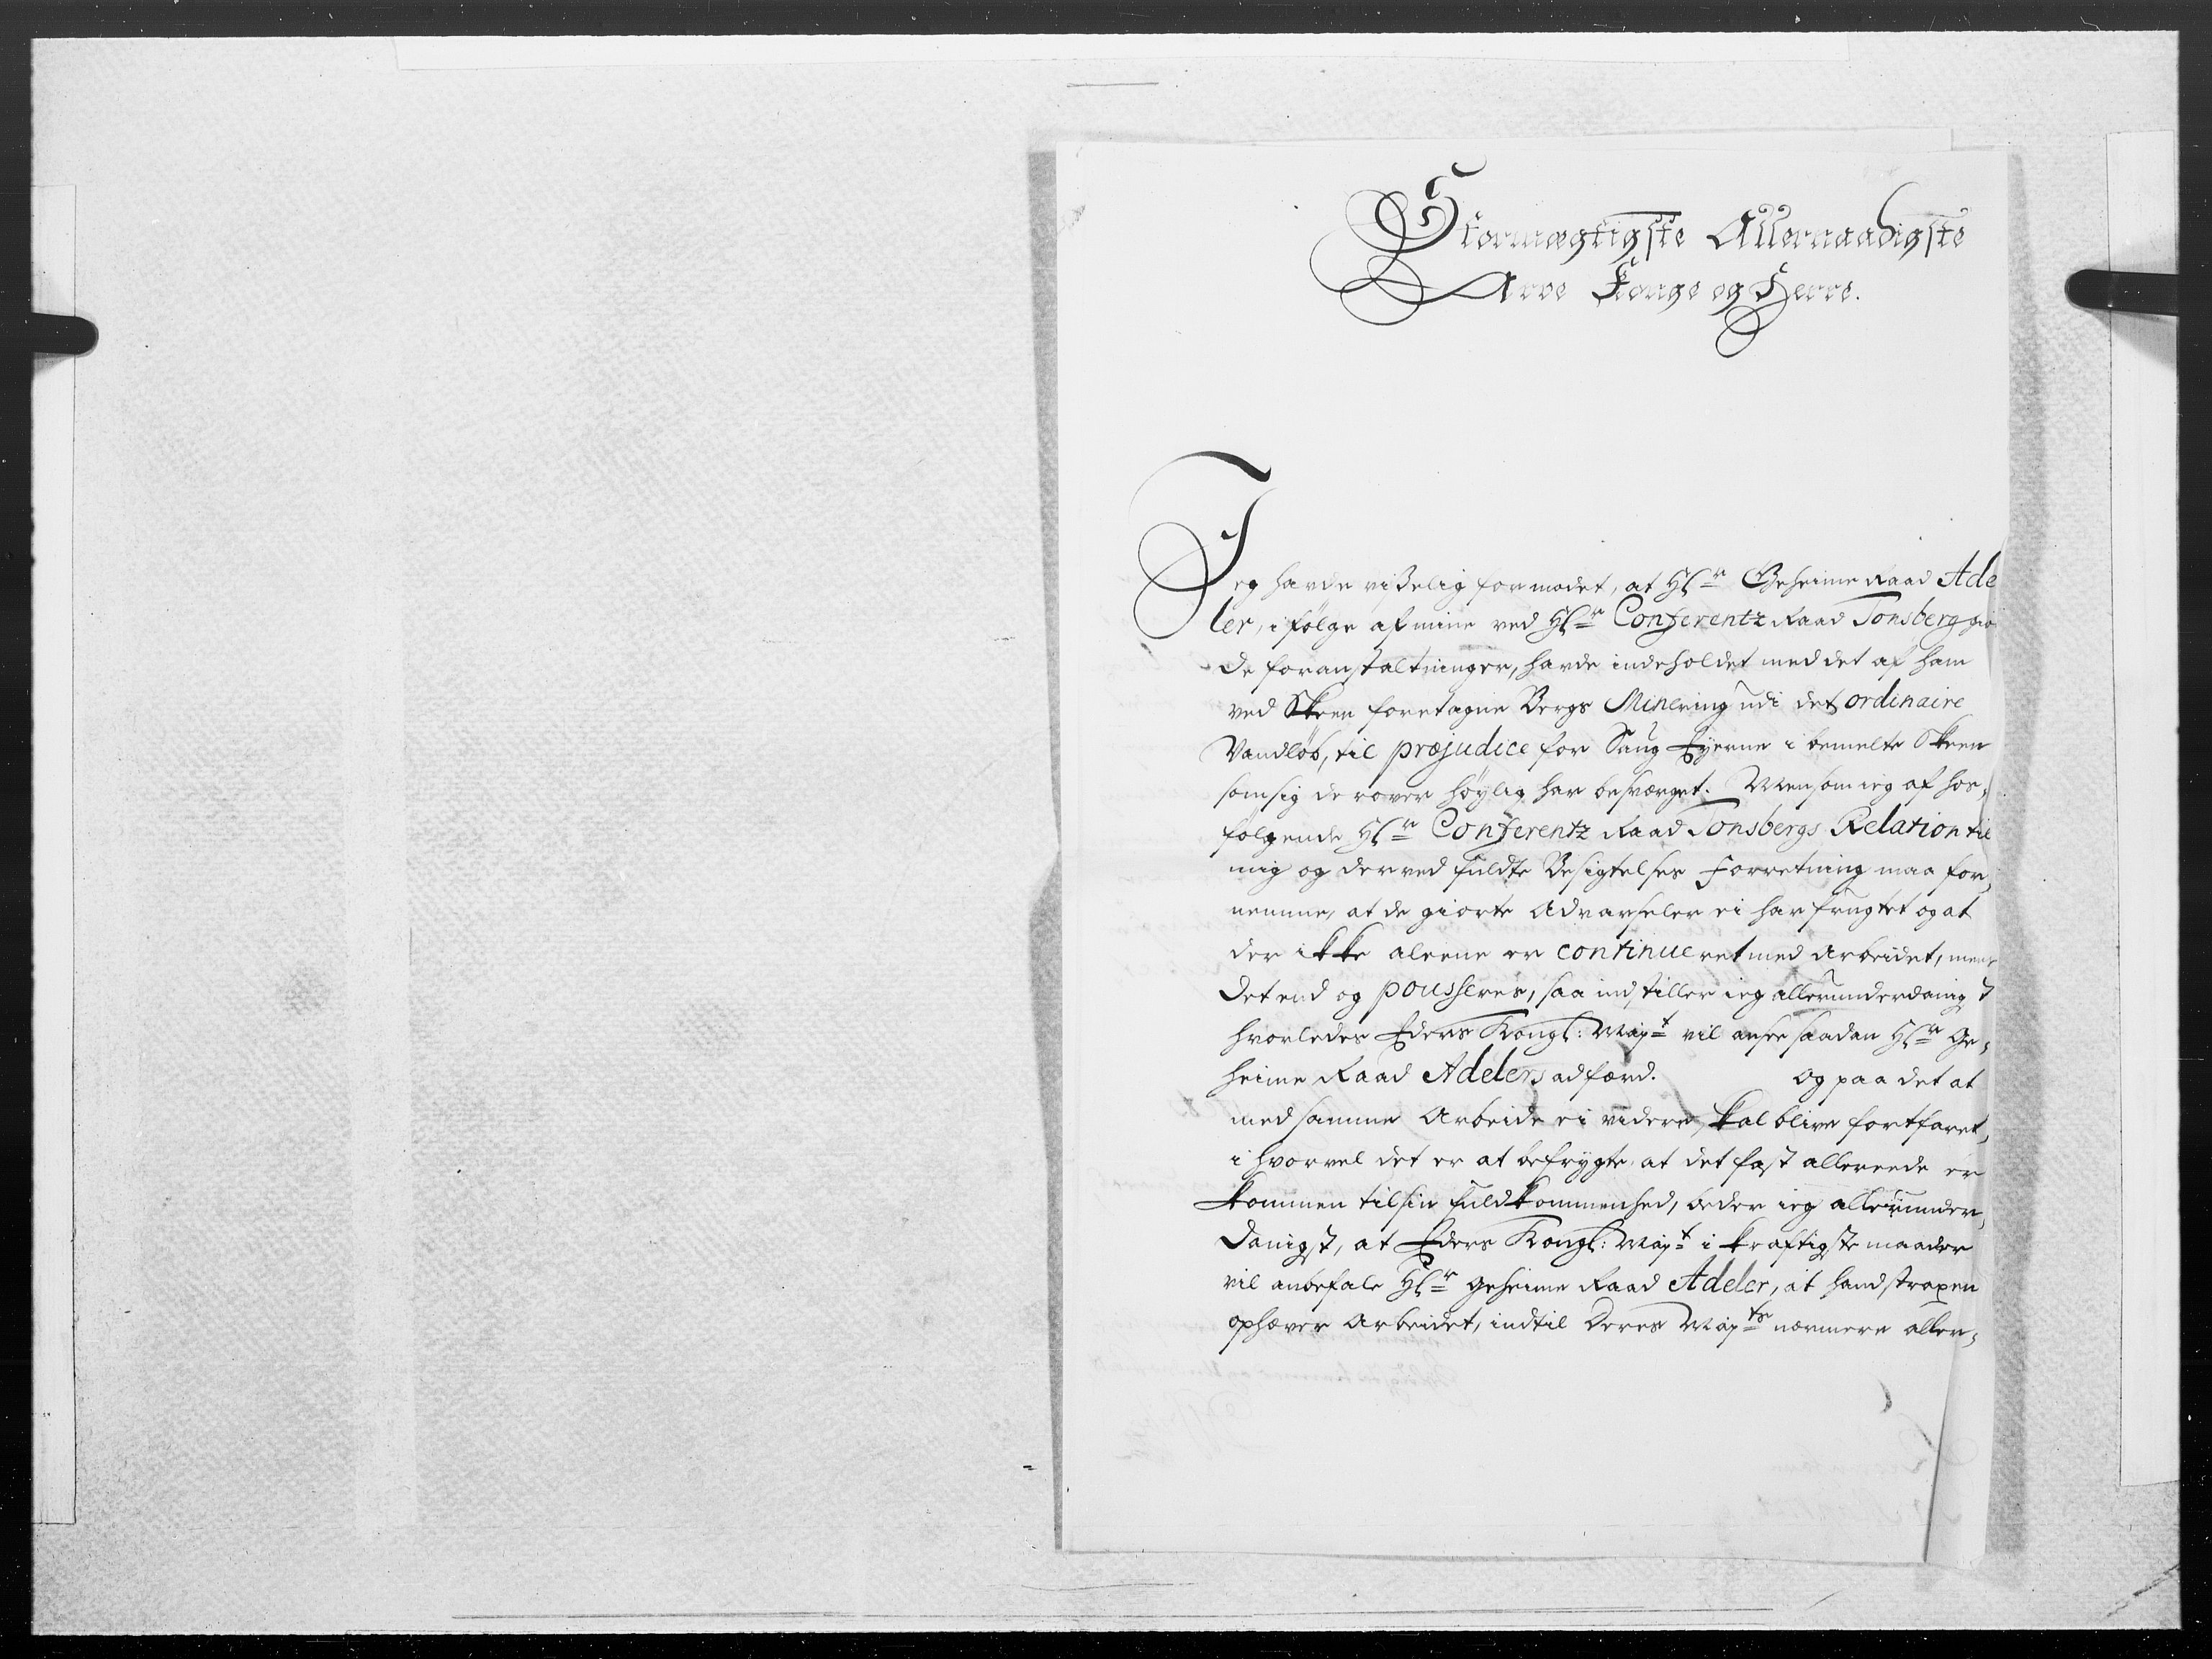 Stormægtigste Allernaadigste
Arve Konge og Herre.
Jeg havde visselig formodet, at Hr Geheime Raad Ade
ler, i følge af mine ved Hr Conferentz Raad Tonsberg gio
de foranstaltninger, havde indeholdet med det af ham
ved Skeen foretagne Bergs Minering udi det ordinaire
Vandløb, til præjudice for Saug Eyerne i bemelte Skeen
som sig derover høylig har besværget. Men som ieg af hos,
følgende Hr Conferentz Raad Tonsbergs Relation til
mig og derved fuldte Besigtelses Forretning maa for,
nemme, at de giorte Advarseler ei har frugtet og at
der ikke aleene er continueret med Arbeidet, mens
det end og pousseres, saa indstiller ieg allerunderdanigst
hvorledes Eders Kongl: Mayt vil ansee saadan Hr Ge,
heime Raad Adelers adfærd. Og paa det at
med samme Arbeide ei videre skal blive fortfaret,
i hvorvel det er at befrygte at det fast allereede er
kommen til sin fuldkommenhed, beder ieg allerunder,
danigst, at Eders Kongl: Mayt i kraftigste maader
vil anbefale Hr Geheime Raad Adeler, at hand straxen
ophæver Arbeidet, indtil Deres Mayts nærmere aller,